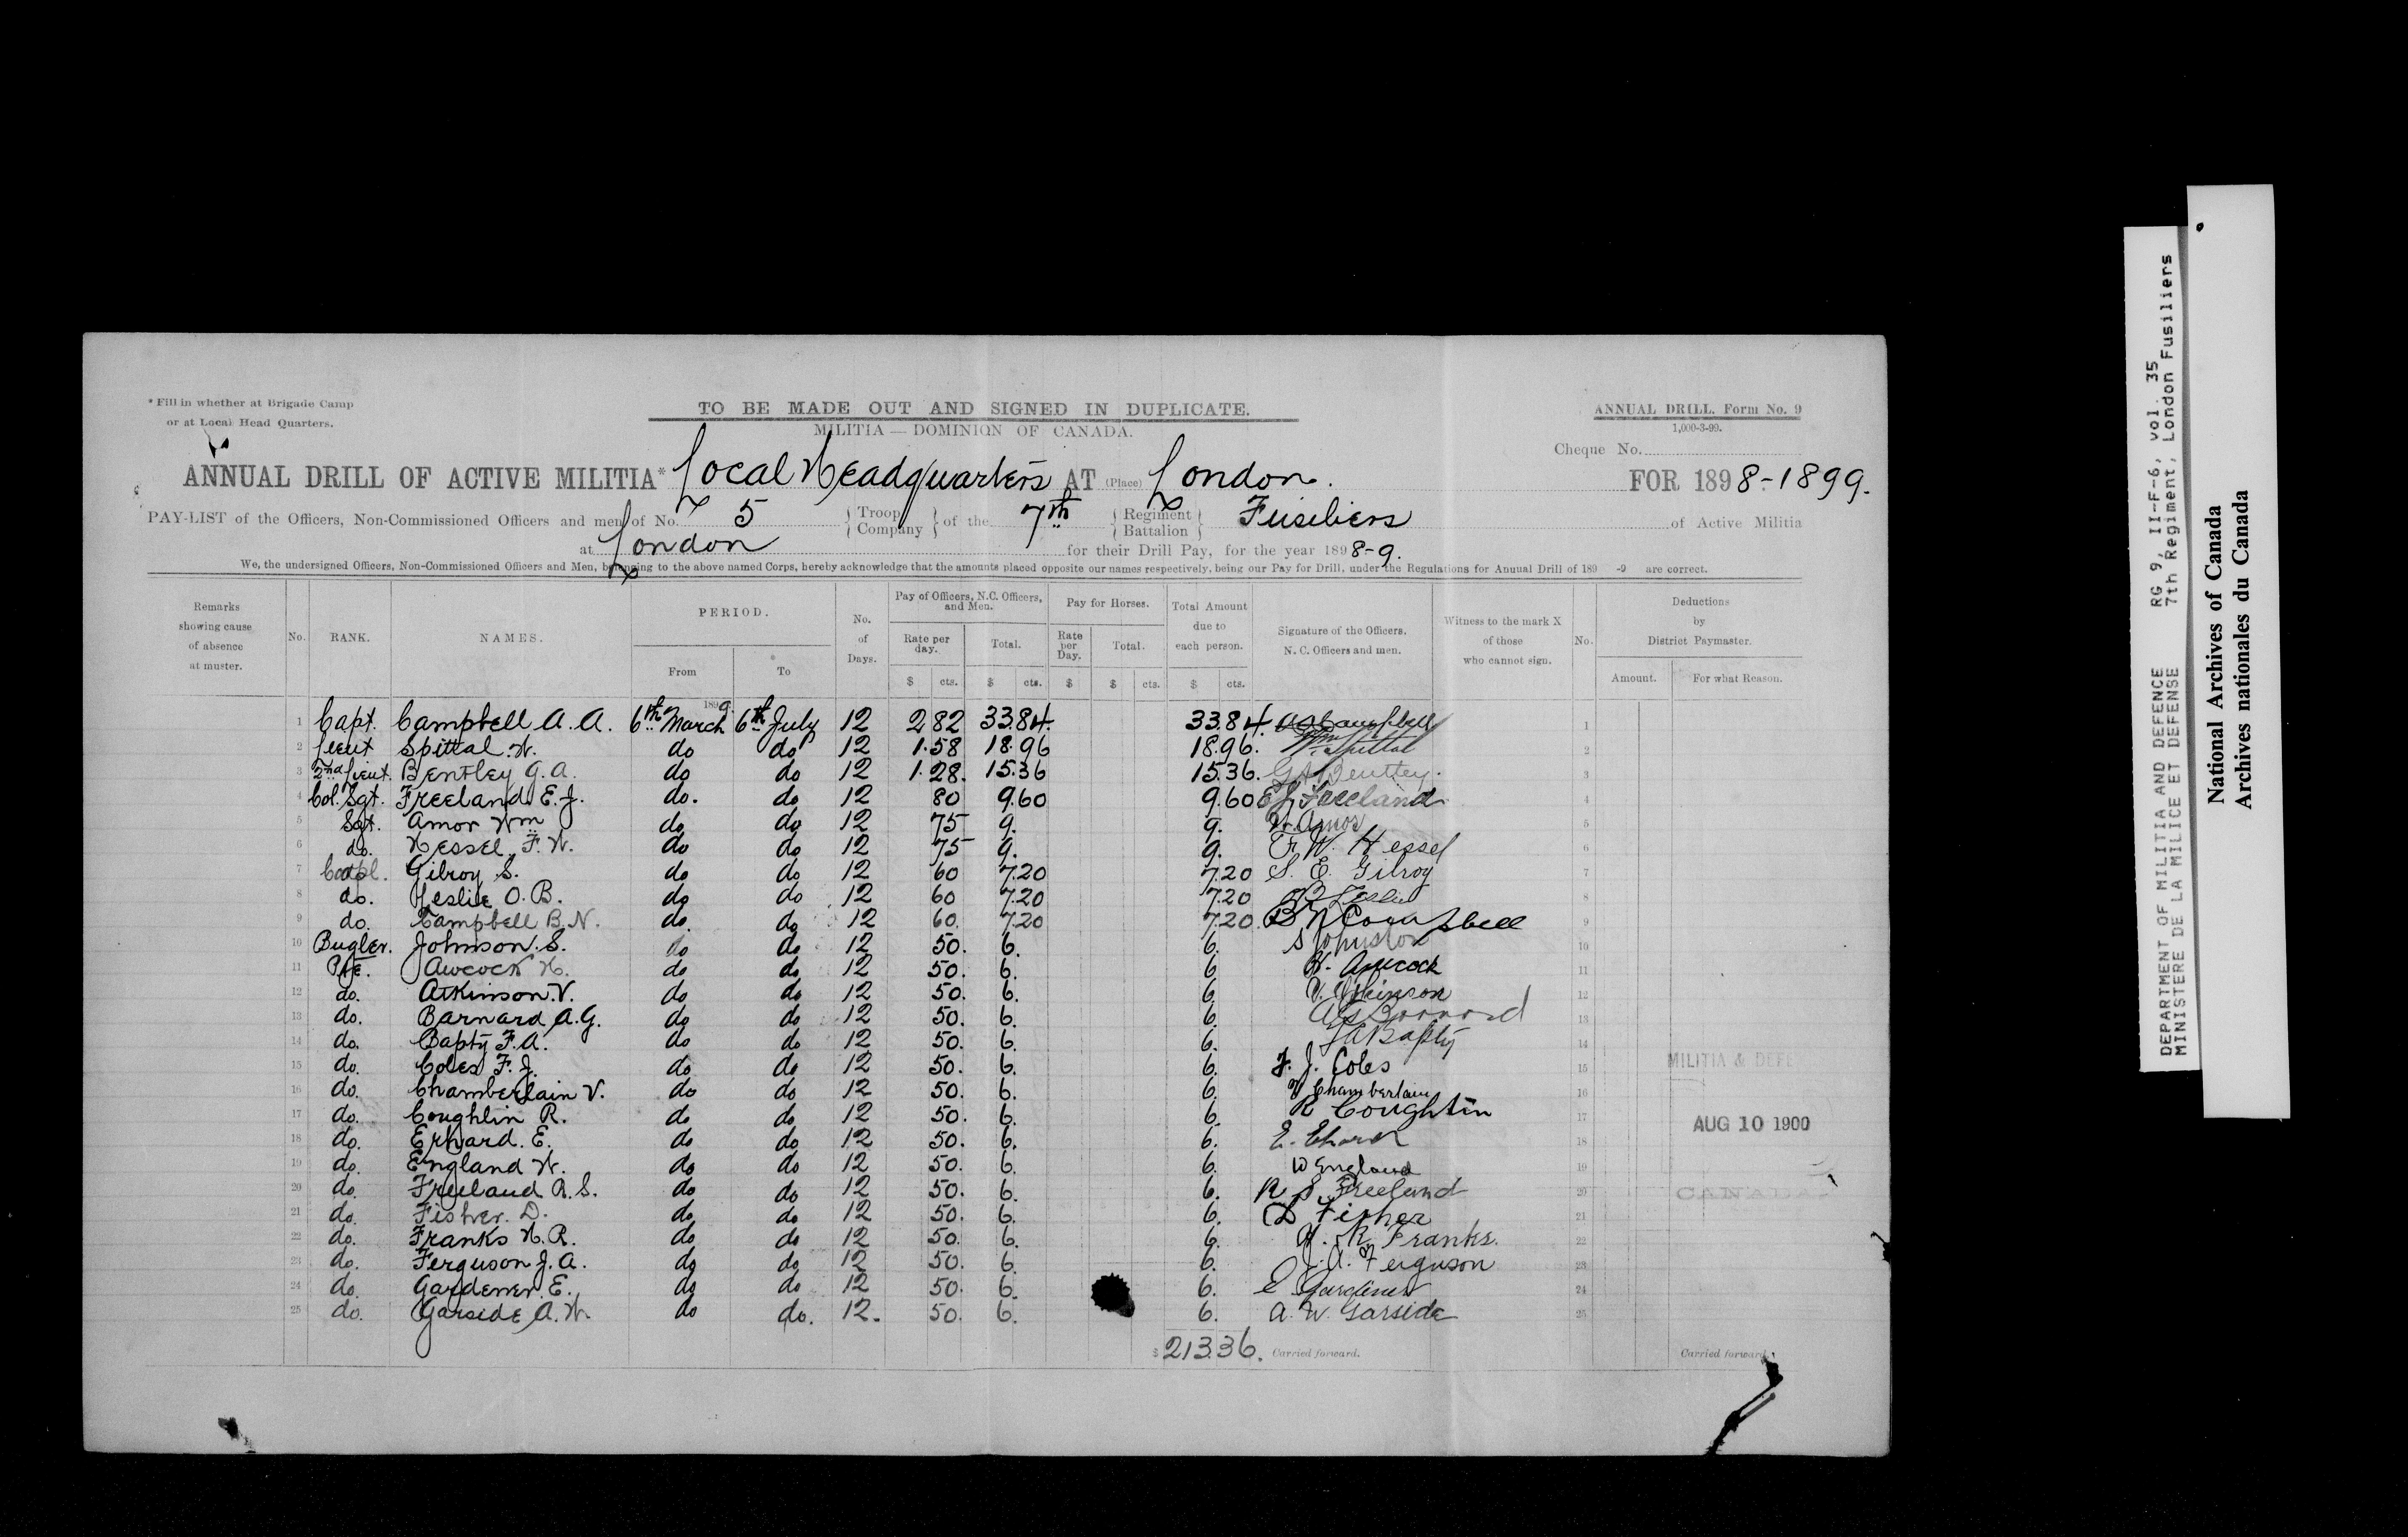 * Fill in whether at Brigade Camp
or at Local Head Quarters.
TO BE MADE OUT AND SIGNED IN DUPLICATE.
MILITIA — DOMINION OF CANADA.
ANNUAL DRILL. Form No. 9
1,000-3-99.
Cheque No.
ANNUAL DRILL OF ACTIVE MILITIA* Local Headquarters AT (Place) London. FOR 1898-1899.
PAY-LIST of the Officers, Non-Commissioned Officers and men of No. 5 { Troop Company } of the 7th { Regiment Battalion } Fusiliers of Active Militia
at London for their Drill Pay, for the year 1898-9.
We, the undersigned Officers, Non-Commissioned Officers and Men, belonging to the above named Corps, hereby acknowledge that the amounts placed opposite our names respectively, being our Pay for Drill, under the Regulations for Annual Drill of 189 -9 are correct.
Remarks showing cause of absence at muster. No. RANK. NAMES. PERIOD. From To No. of Days. Pay of Officers, N.C. Officers, and Men. Rate per day. $ cts. Total. $ cts. Pay for Horses. Rate per Day. $ Total. $ cts. Total Amount due to each person. $ cts. Signature of the Officers, N. C. Officers and men. Witness to the mark X of those who cannot sign. No. Deductions by District Paymaster. Amount. For what Reason.
1899.
1 Capt. Campbell A. A. 6th March 6th July 12 2 82 33.84. 33.84. AACampbell 1
2 Lieut Spittal W. do do 12 1.58 18.96 18.96. Wm Spittal 2
3 2nd Lieut. Bentley G. A. do do 12 1.28. 15.36 15.36. GABentley. 3
4 Col. Sgt. Freeland E. J. do. do 12 80 9.60 9.60 EJ Freeland 4
5 Sgt. Amor Wm do do 12 75 9. 9. W. Amos 5
6 do. Hessel F. W. do do 12 75 9. 9. F. W. Hessel 6
7 Corpl. Gilroy S. do do 12 60 7.20 7.20 S. E. Gilroy 7
8 do. Leslie O. B. do do 12 60 7.20 7.20 OB Leslie 8
9 do. Campbell B. N. do. do 12 60. 7.20 7.20. B N Campbell 9
10 Bugler. Johnson. S. do do 12 50. 6. 6. S Johnston 10
11 Pte. Awcock H. do do 12 50. 6. 6 H. Awcock 11
12 do. Atkinson. V. do do 12 50. 6. 6 V. Atkinson 12
13 do. Barnard A. G. do do 12 50. 6. 6. AG Barnard 13
14 do. Bapty F. A. do do 12 50. 6. 6. FA Bapty 14
15 do. Coles F. J. do do 12 50. 6. 6. F. J. Coles 15
16 do. Chamberlain V. do do 12 50. 6. 6. V Chamberlain 16
17 do. Coughlin R. do do 12 50. 6. 6. R Coughlin 17
18 do. Erhard. E. do do 12 50. 6. 6. E. Ehard 18
19 do. England W. do do 12 50. 6. 6. W England 19
20 do. Freeland R. S. do do 12 50. 6. 6. R S. Freeland 20
21 do. Fisher. D. do do 12 50. 6. 6. D Fisher 21
22 do. Franks H. R. do do 12 50. 6. 6. H. R. Franks. 22
23 do. Ferguson J. A. do do 12 50. 6. 6. J. A. Ferguson 23
24 do. Gardener. E. do do 12 50. 6. 6. E Gardiner 24
25 do. Garside A. W. do do. 12. 50. 6. 6. A. W. Garside 25
$ 213.36. Carried forward. Carried forward.
MILITIA & DEFE
AUG 10 1900
CANADA
DEPARTMENT OF MILITIA AND DEFENCE RG 9, II-F-6, vol. 35
MINISTERE DE LA MILICE ET DEFENSE 7th Regiment, London Fusiliers
National Archives of Canada
Archives nationales du Canada